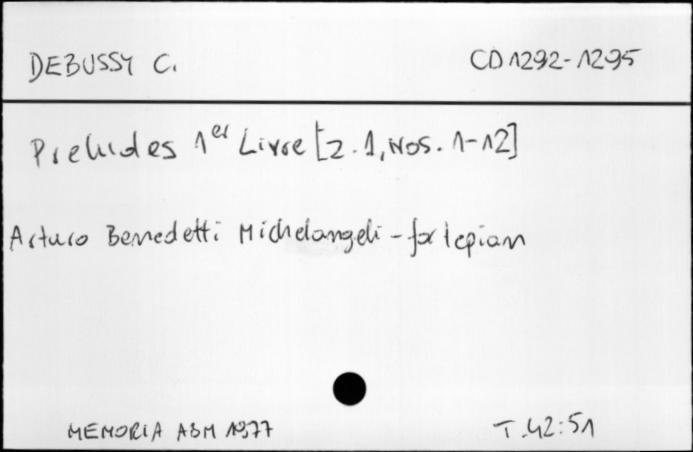 DEBUSSY C. CD 1292-1295
Preludes 1er Livre [z. 1, Nos. 1-12]
Arturo Benedetti Michelangeli - fortepian
MEMORIA ABM 1977 T. 42:51